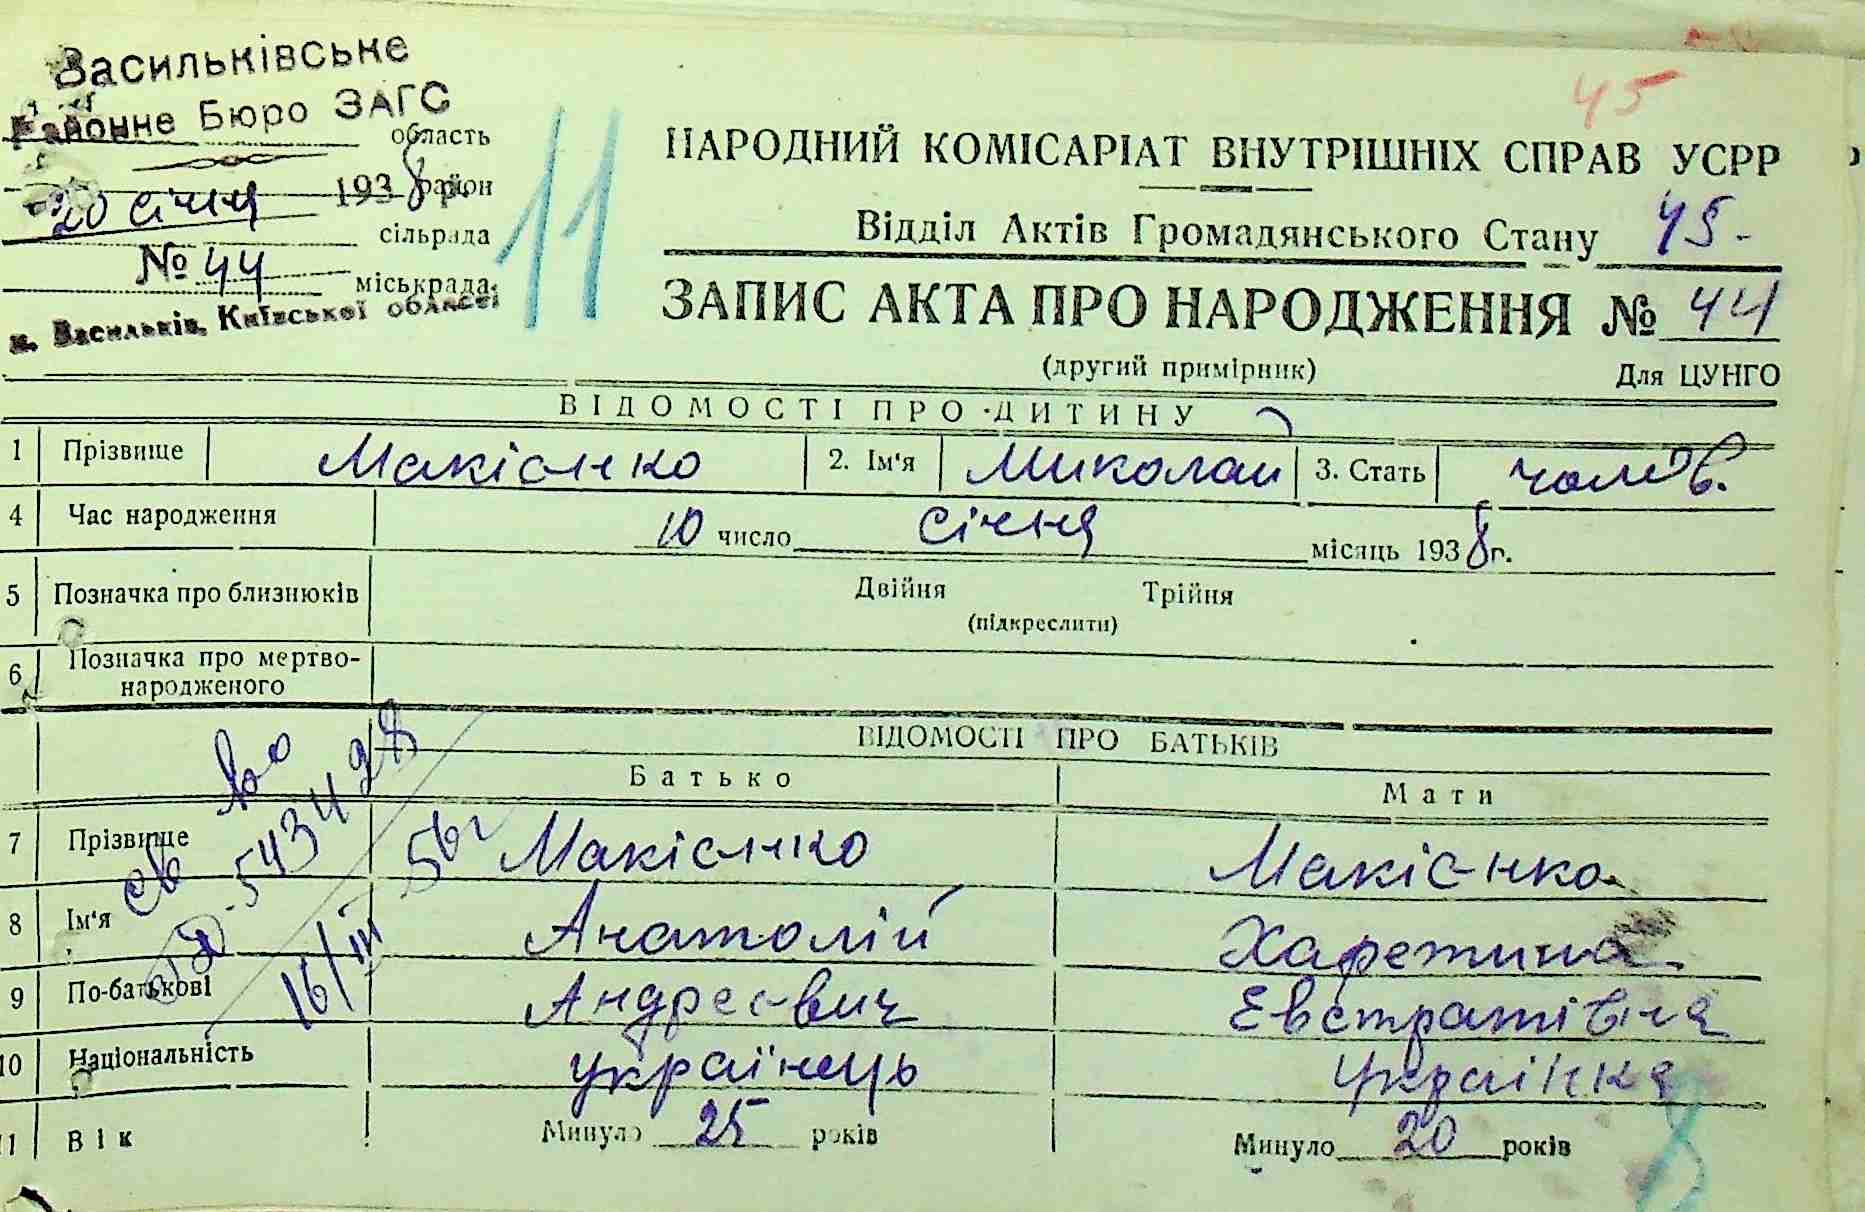 Васильківське
Районне Бюро ЗАГС
область
район
20 січня 1938 р.
сільрада
№ 44
міськрада
м. Васильків, Київської області
11
45
НАРОДНИЙ КОМІСАРІАТ ВНУТРІШНІХ СПРАВ УСРР
Відділ Актів Громадянського Стану 45-
ЗАПИС АКТА ПРО НАРОДЖЕННЯ № 44
(другий примірник) Для ЦУНГО
ВІДОМОСТІ ПРО ДИТИНУ
1 Прізвище Макієнко 2. Ім'я Миколай 3. Стать чолов.
4 Час народження 10 число січня місяць 1938 г.
5 Позначка про близнюків Двійня Трійня
(підкреслити)
6 Позначка про мертво-
народженого
ВІДОМОСТІ ПРО БАТЬКІВ
Батько Мати
7 Прізвище Макієнко Макієнко
8 Ім'я Анатолій Харетина
9 По-батькові Андреєвич Евстратівна
10 Національність українець українка
11 Вік Минуло 25 років Минуло 20 років
543498
16/III 56 г